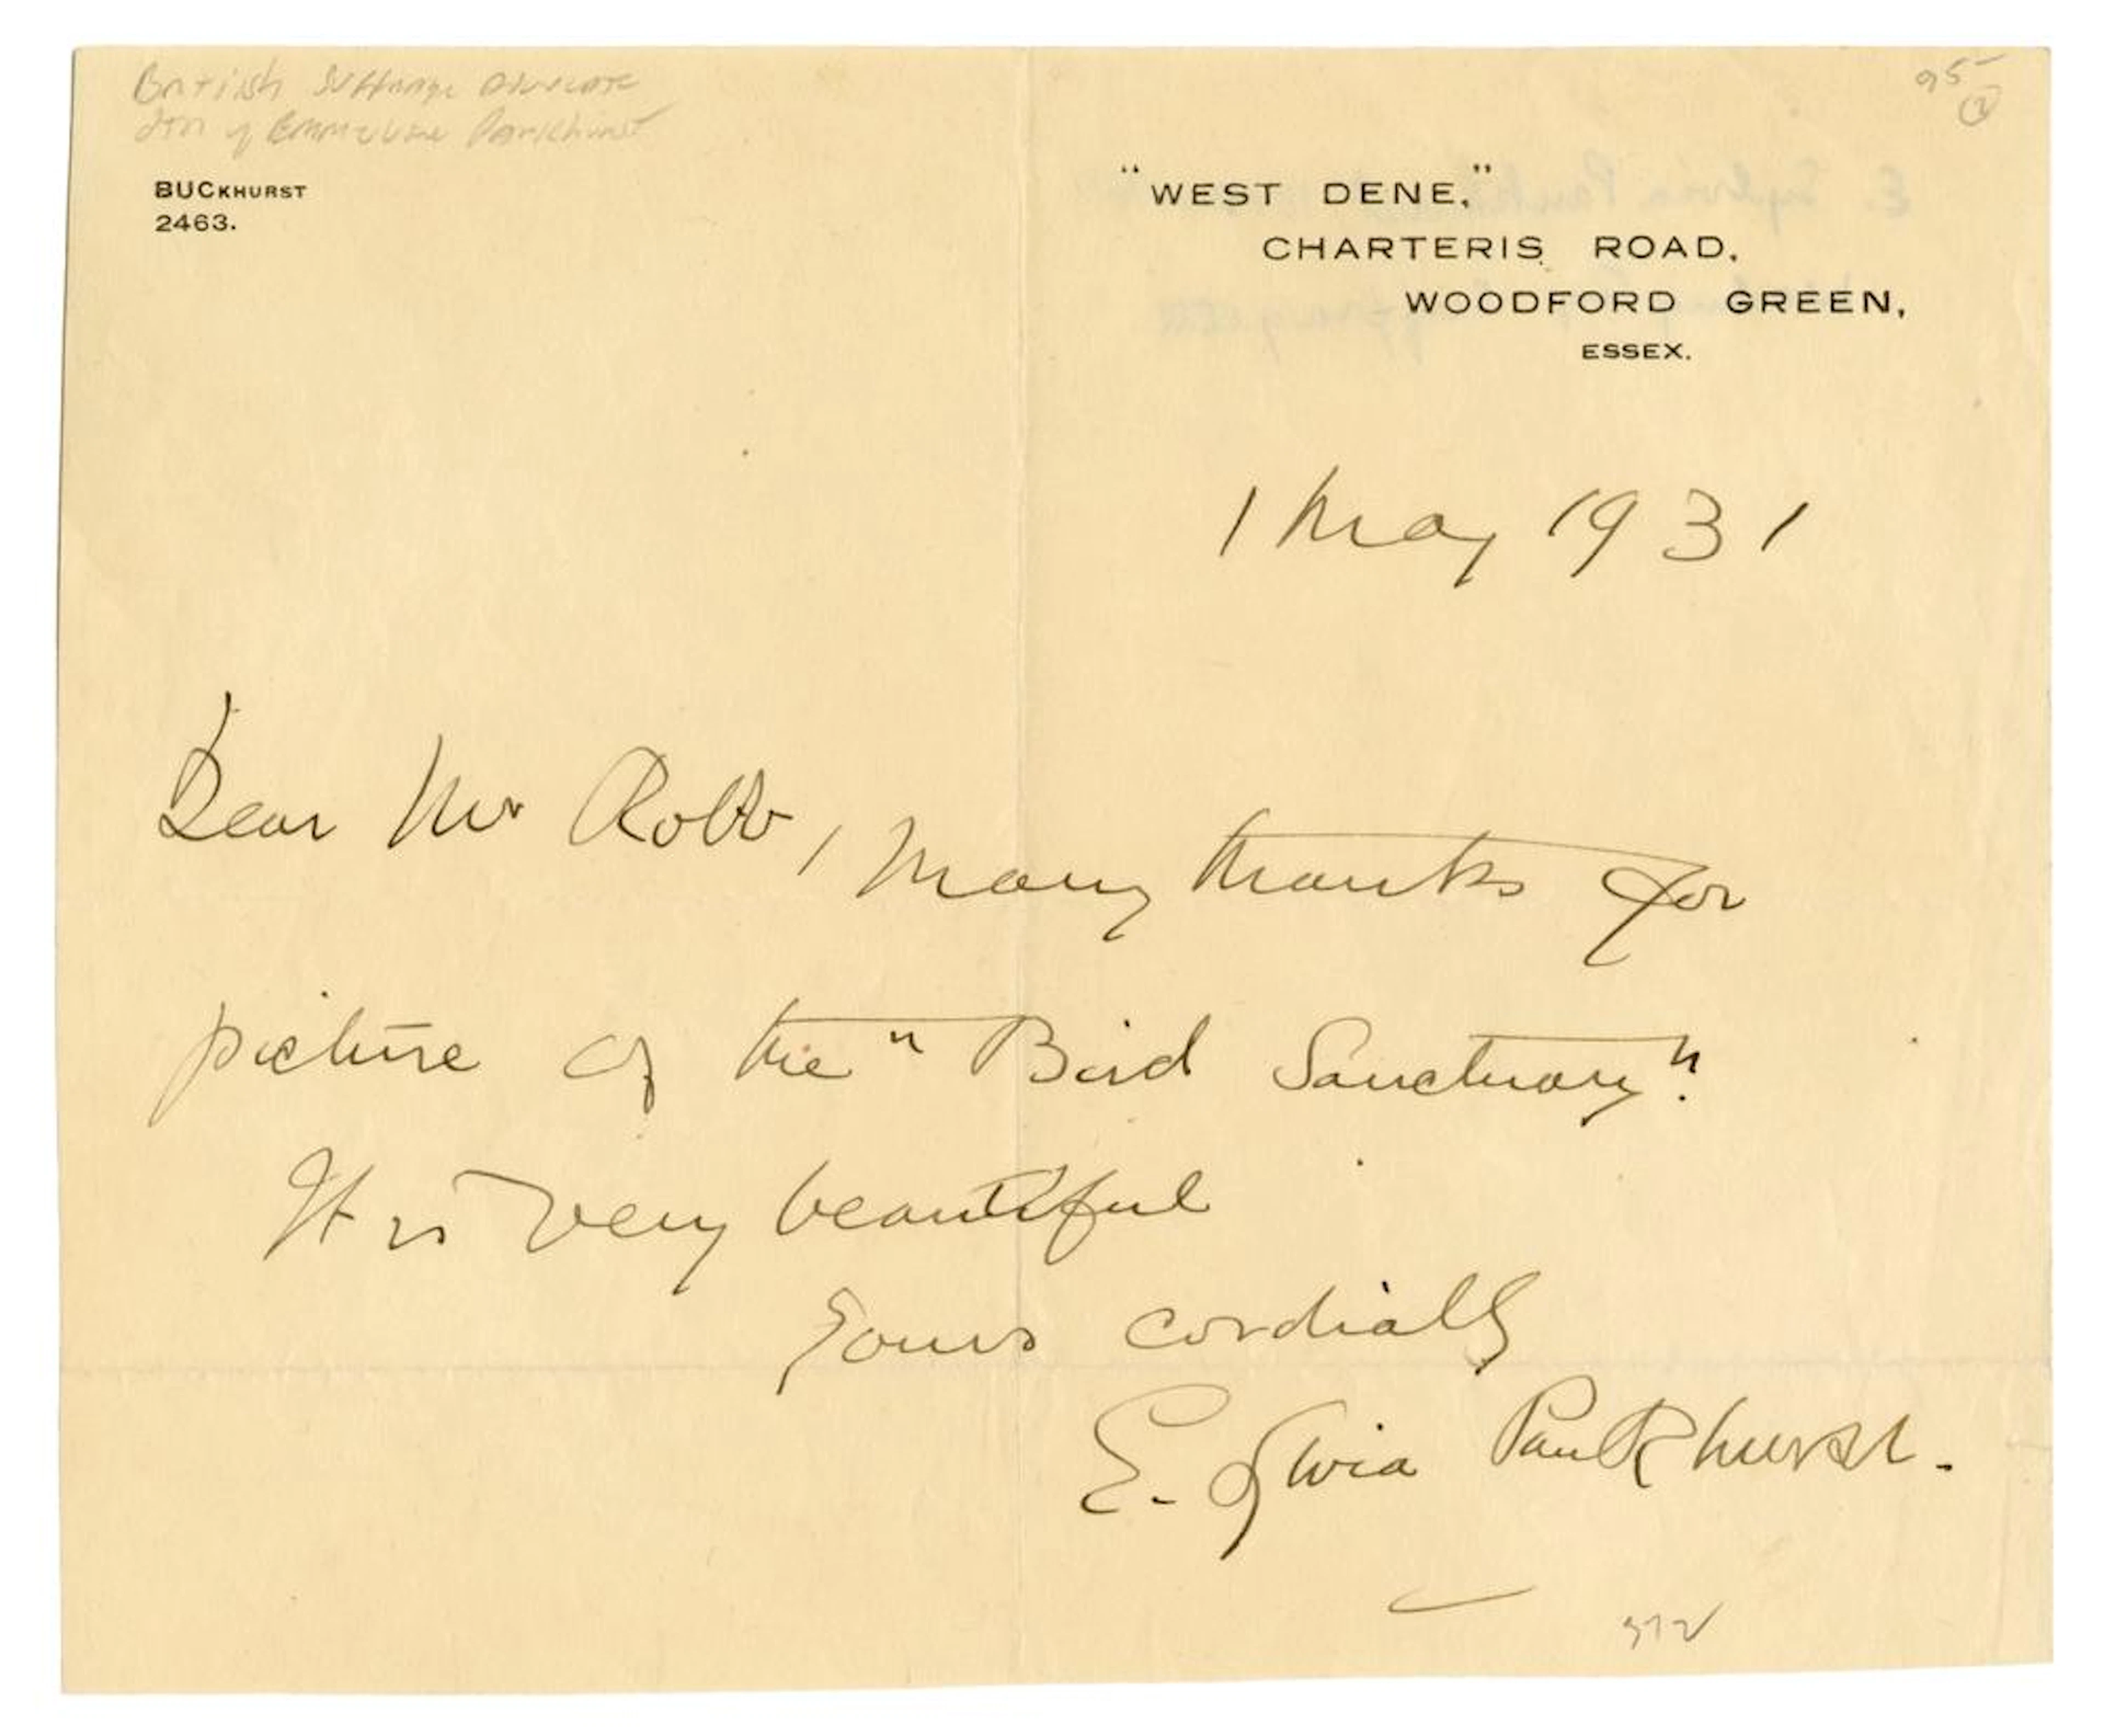 British Suffrage Advocate
dtr of Emmeline Pankhurst
95
BUCKHURST
2463.
"WEST DENE,"
CHARTERIS ROAD,
WOODFORD GREEN,
ESSEX.
1 May 1931
Dear Mr Robb, Many thanks for
picture of the "Bird Sanctuary".
It is very beautiful
Yours cordially
E. Sylvia Pankhurst.